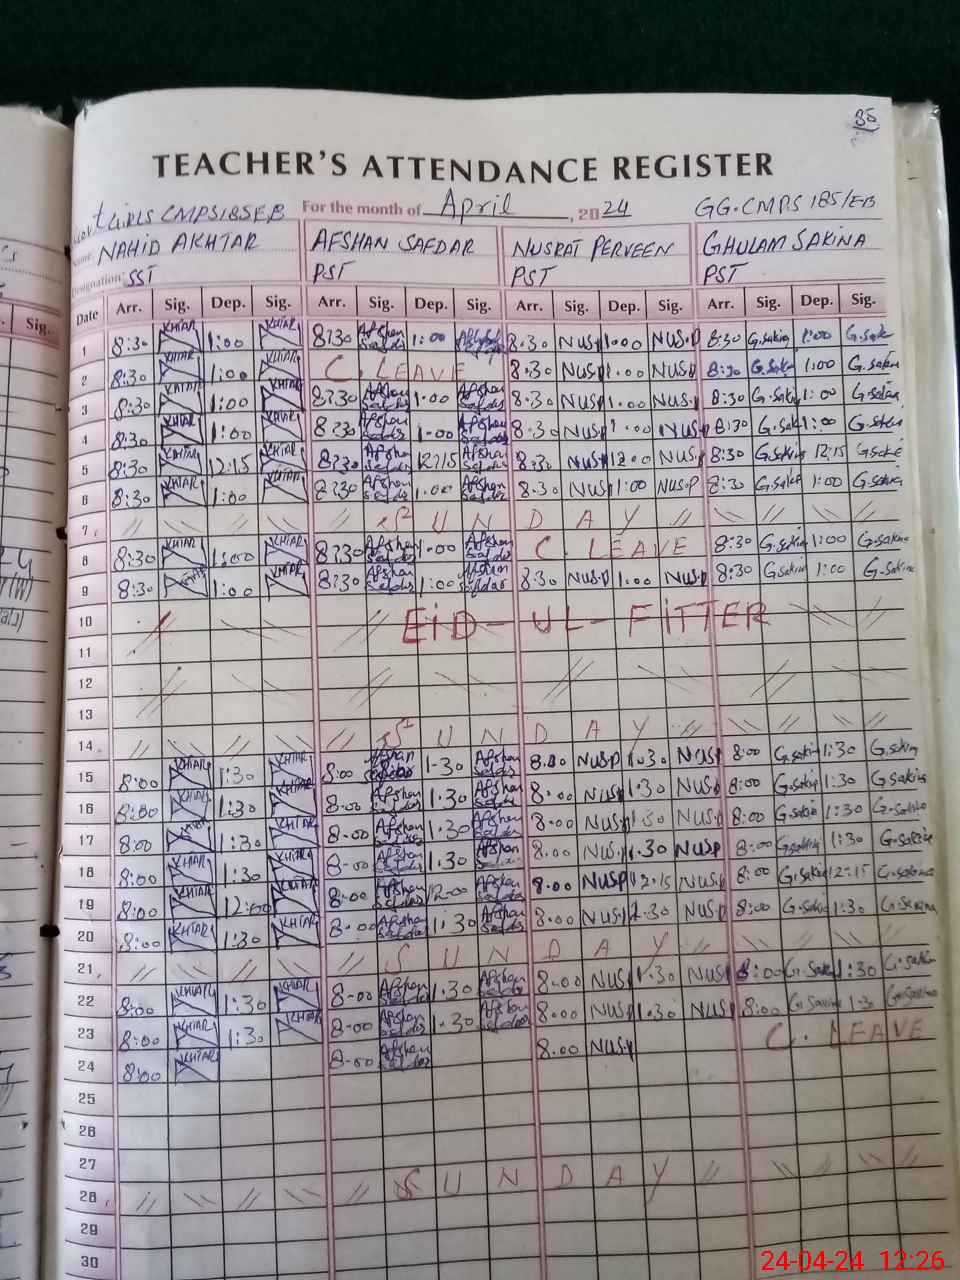 35
TEACHER'S ATTENDANCE REGISTER
GIRLS CMPS185EB For the month of April, 2024 GG.CMPS 185/EB
Name: NAHID AKHTAR AFSHAN SAFDAR NUSRAT PERVEEN GHULAM SAKINA
Designation: SST PST PST PST
Sig. Date Arr. Sig. Dep. Sig. Arr. Sig. Dep. Sig. Arr. Sig. Dep. Sig. Arr. Sig. Dep. Sig.
1 8:30 KHTAR 1:00 KHTAR 8:30 Afshan Safdar 1:00 8.30 NUS.P 1.00 NUS.P 8:30 G.Sakina 1:00 G.Sakina
2 8:30 KHTAR 1:00 KHTAR C. LEAVE 8.30 NUS.P 1.00 NUS.P 8:30 G.Sakina 1:00 G.Sakina
3 8:30 KHTAR 1:00 KHTAR 8:30 Afshan Safdar 1.00 Afshan Safdar 8.30 NUS.P 1.00 NUS.P 8:30 G.Sakina 1:00 G.Sakina
4 8:30 KHTAR 1:00 KHTAR 8:30 Afshan Safdar 1.00 Afshan Safdar 8.30 NUS.P 1.00 NUS.P 8:30 G.Sakina 1:00 G.Sakina
5 8:30 KHTAR 12:15 KHTAR 8:30 Afshan Safdar 12:15 Afshan Safdar 8.30 NUS.P 12.00 NUS.P 8:30 G.Sakina 12:15 G.Sakina
6 8:30 KHTAR 1:00 KHTAR 8:30 Afshan Safdar 1.00 Afshan Safdar 8.30 NUS.P 1:00 NUS.P 8:30 G.Sakina 1:00 G.Sakina
7 SUNDAY
8 8:30 KHTAR 1:00 KHTAR 8:30 Afshan Safdar 1.00 Afshan Safdar C. LEAVE 8:30 G.Sakina 1:00 G.Sakina
9 8:30 KHTAR 1:00 KHTAR 8:30 Afshan Safdar 1:00 Afshan Safdar 8.30 NUS.P 1.00 NUS.P 8:30 G.Sakina 1:00 G.Sakina
10 EID-UL-FITTER
11
12
13
14 SUNDAY
15 8:00 KHTAR 1:30 KHTAR 8:00 Afshan 1.30 Afshan Safdar 8.00 NUS.P 1.30 NUS.P 8:00 G.Sakina 1:30 G.Sakina
16 8:00 KHTAR 1:30 KHTAR 8.00 Afshan Safdar 1.30 Afshan Safdar 8.00 NUS.P 1.30 NUS.P 8:00 G.Sakina 1:30 G.Sakina
17 8:00 KHTAR 1:30 KHTAR 8.00 Afshan Safdar 1.30 Afshan Safdar 8.00 NUS.P 1.30 NUS.P 8:00 G.Sakina 1:30 G.Sakina
18 8:00 KHTAR 1:30 KHTAR 8.00 Afshan Safdar 1.30 Afshan Safdar 8.00 NUS.P 1.30 NUS.P 8:00 G.Sakina 1:30 G.Sakina
19 8:00 KHTAR 12:00 KHTAR 8.00 Afshan Safdar 12.00 Afshan Safdar 8.00 NUS.P 12.15 NUS.P 8:00 G.Sakina 12:15 G.Sakina
20 8:00 KHTAR 1:30 KHTAR 8.00 Afshan Safdar 1:30 Afshan Safdar 8.00 NUS.P NUS.P 8:00 G.Sakina 1:30 G.Sakina
21 SUNDAY
22 8:00 KHTAR 1:30 KHTAR 8.00 Afshan Safdar 1.30 Afshan Safdar 8.00 NUS.P 1.30 NUS.P 8:00 G.Sakina 1:30 G.Sakina
23 8:00 KHTAR 1:30 KHTAR 8.00 Afshan Safdar 1.30 Afshan Safdar 8.00 NUS.P 1.30 NUS.P 8:00 G.Sakina 1:30 G.Sakina
24 8:00 KHTAR 8.00 Afshan Safdar 8.00 NUS.P C. LEAVE
25
26
27
28 SUNDAY
29
30
24-04-24 12:26